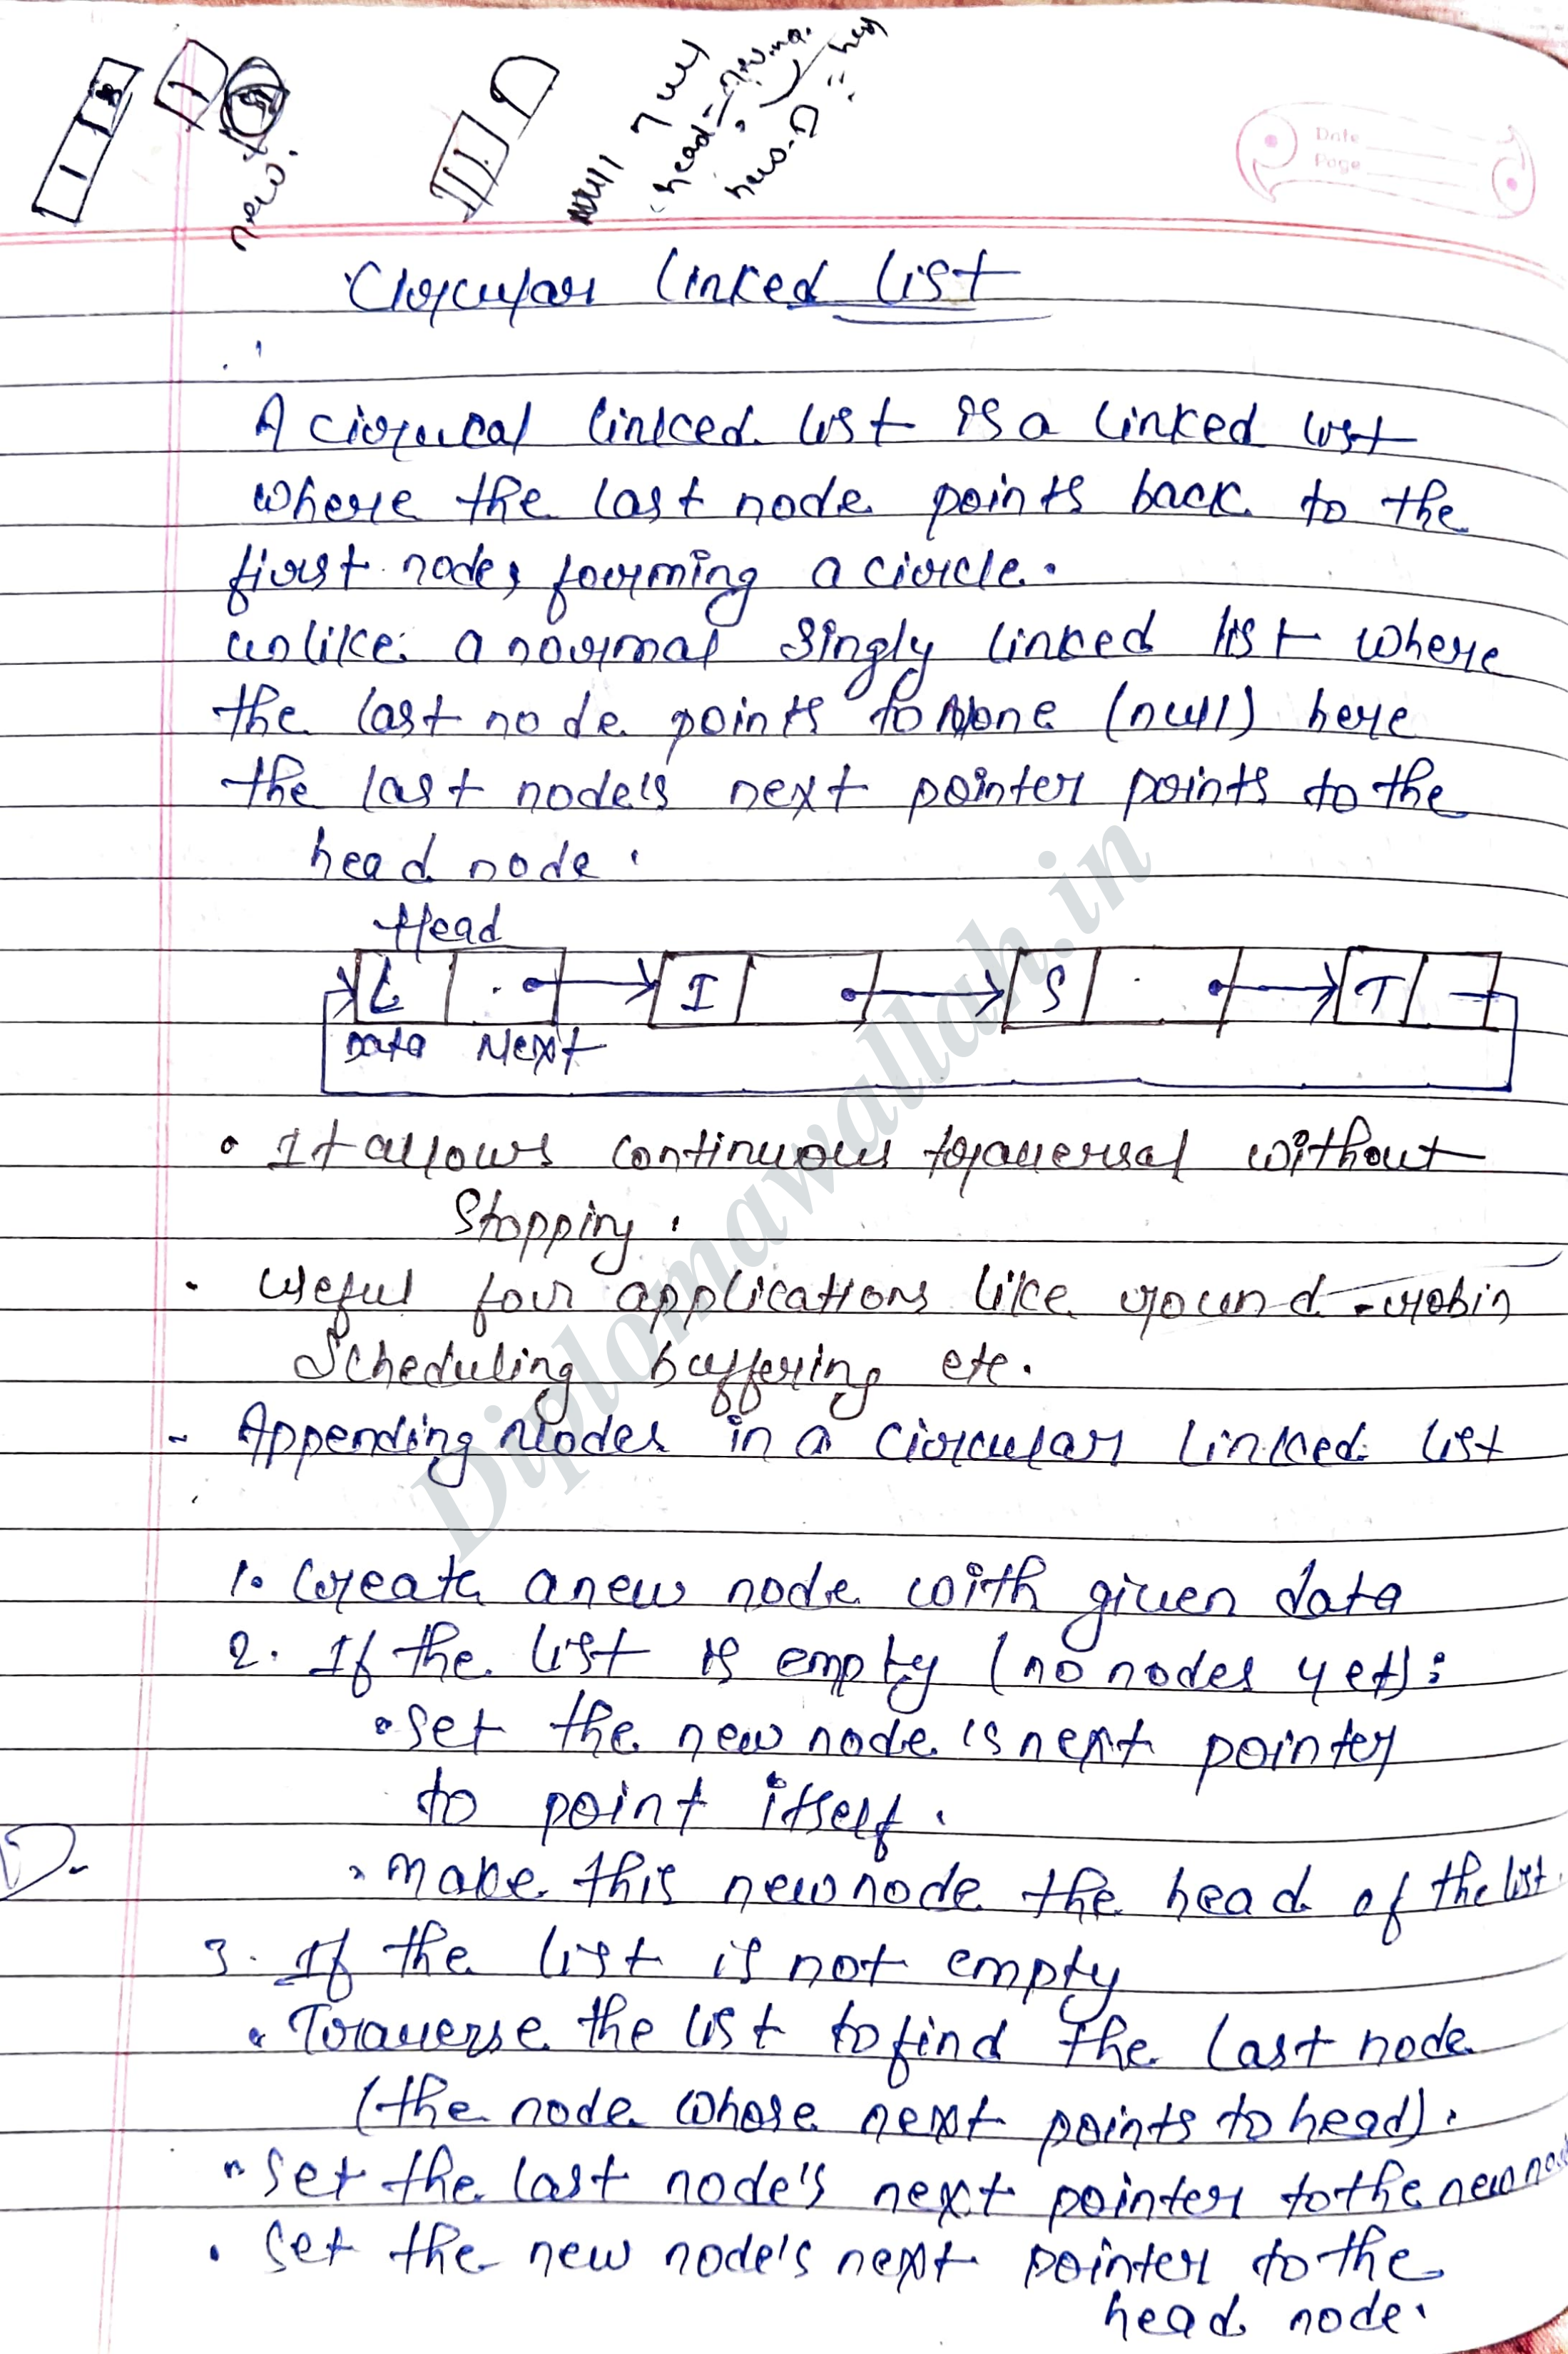 new.
null
Date
Page
Circular linked list
A circucal linked list is a linked list
where the last node points back to the
first node, forming a circle.
unlike a normal singly linked list where
the last node points to None (null) here
the last node's next pointer points to the
head node.
Head
L I S T
Data Next
• It allows continuous traversal without
stopping.
• Useful for applications like round-robin
Scheduling buffering etc.
- Appending Nodes in a circular linked list
1. Create a new node with given data
2. If the list is empty (no nodes yet):
• set the new node's next pointer
to point itself.
• make this new node the head of the list.
3. If the list is not empty
• Traverse the list to find the last node
(the node whose next points to head).
• set the last node's next pointer to the new
• set the new node's next pointer to the
head node.
Diplomawallah.in